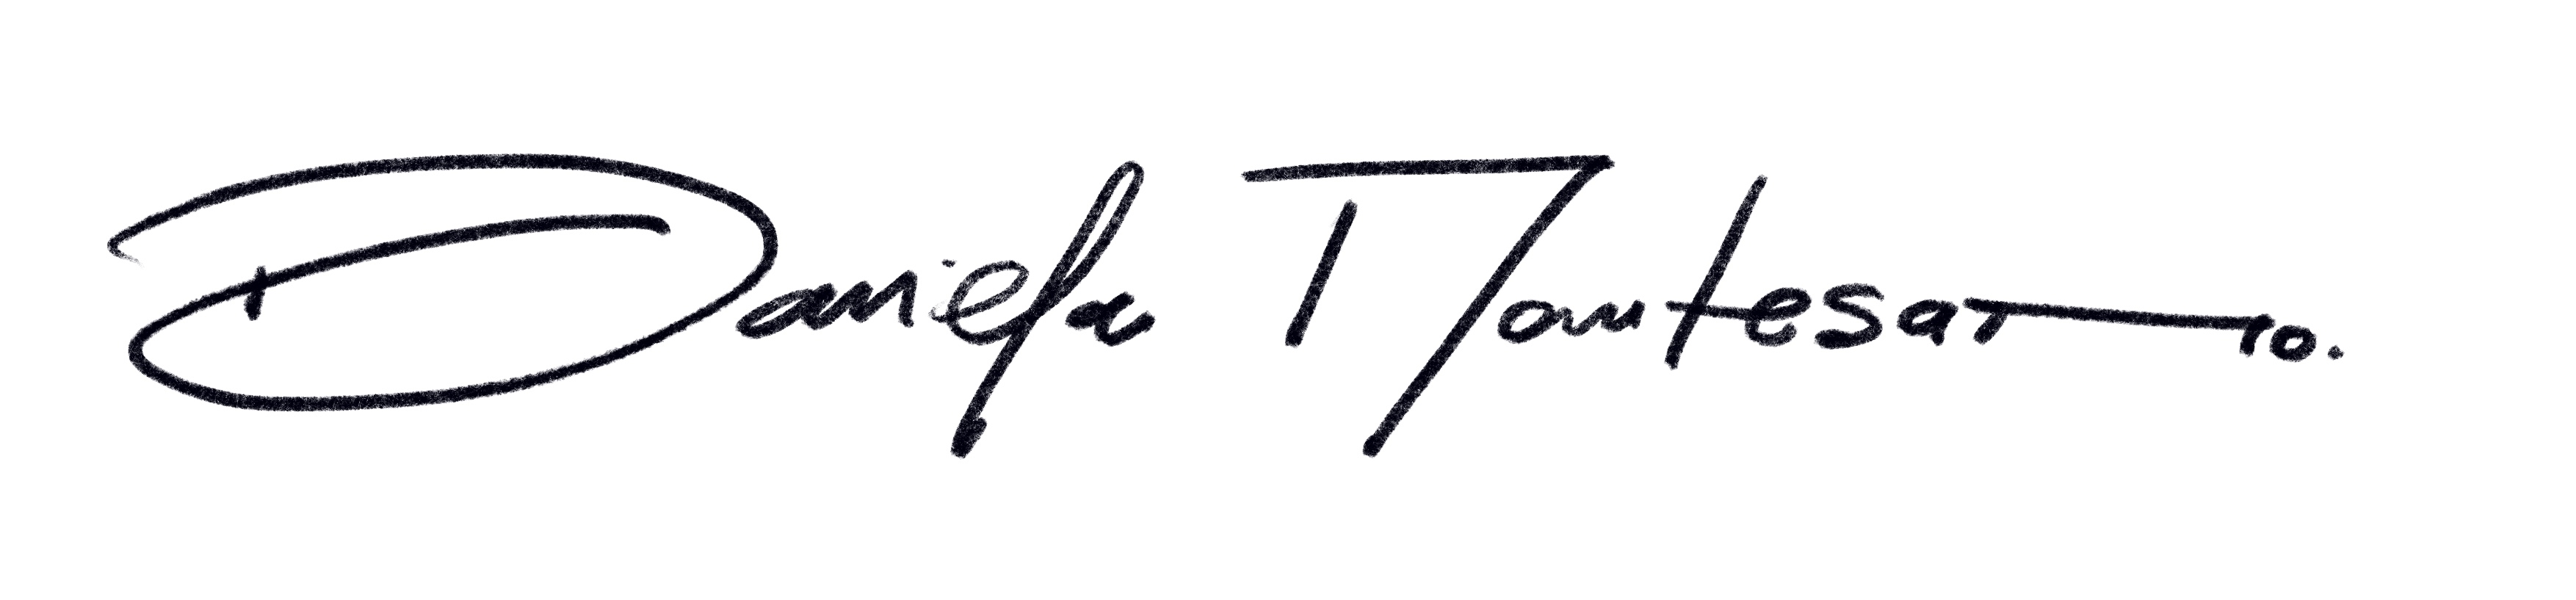 Daniela Montesarro.